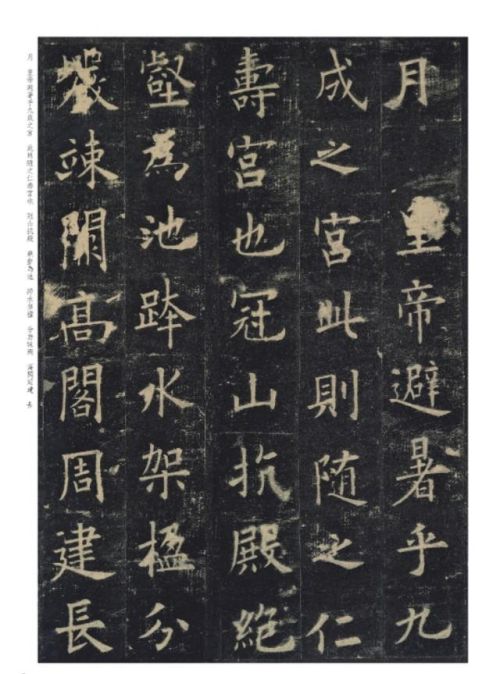 月 皇帝避暑乎九
成之宮此則隨之仁
壽宮也冠山抗殿絕
壑為池跨水架楹分
巖竦闕高閣周建長
月 皇帝避暑乎九成之宮 此則隨之仁壽宮也 冠山抗殿 絕壑為池 跨水架楹 分巖竦闕 高閣周建 長